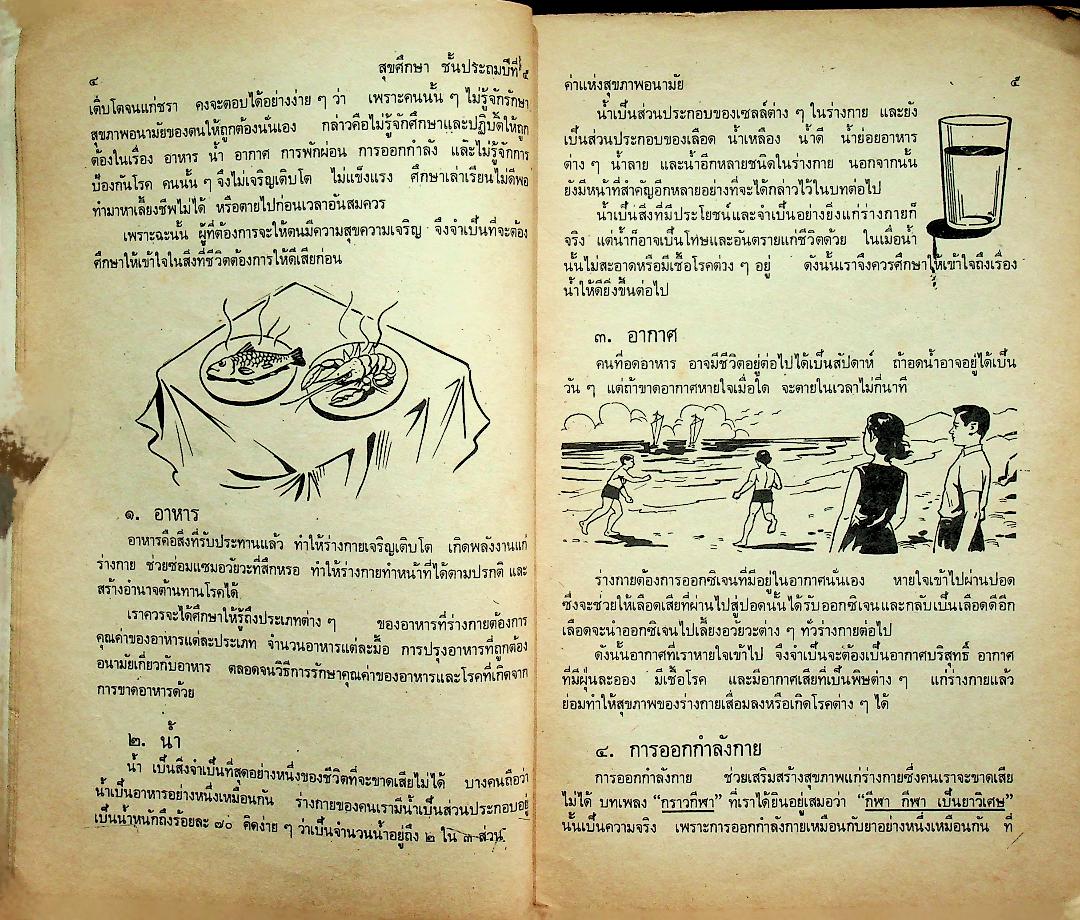 ๔
สุขศึกษา ชั้นประถมปีที่ ๕
เติบโตจนแก่ชรา คงจะตอบได้อย่างง่าย ๆ ว่า เพราะคนนั้น ๆ ไม่รู้จักรักษา
สุขภาพอนามัยของตนให้ถูกต้องนั่นเอง กล่าวคือไม่รู้จักศึกษาและปฏิบัติให้ถูก
ต้องในเรื่อง อาหาร น้ำ อากาศ การพักผ่อน การออกกำลัง และไม่รู้จักการ
ป้องกันโรค คนนั้น ๆ จึงไม่เจริญเติบโต ไม่แข็งแรง ศึกษาเล่าเรียนไม่ดีพอ
ทำมาหาเลี้ยงชีพไม่ได้ หรือตายไปก่อนเวลาอันสมควร
เพราะฉะนั้น ผู้ที่ต้องการจะให้ตนมีความสุขความเจริญ จึงจำเป็นที่จะต้อง
ศึกษาให้เข้าใจในสิ่งที่ชีวิตต้องการให้ดีเสียก่อน
๑. อาหาร
อาหารคือสิ่งที่รับประทานแล้ว ทำให้ร่างกายเจริญเติบโต เกิดพลังงานแก่
ร่างกาย ช่วยซ่อมแซมอวัยวะที่สึกหรอ ทำให้ร่างกายทำหน้าที่ได้ตามปรกติ และ
สร้างอำนาจต้านทานโรคได้
เราควรจะได้ศึกษาให้รู้ถึงประเภทต่าง ๆ ของอาหารที่ร่างกายต้องการ
คุณค่าของอาหารแต่ละประเภท จำนวนอาหารแต่ละมื้อ การปรุงอาหารที่ถูกต้อง
อนามัยเกี่ยวกับอาหาร ตลอดจนวิธีการรักษาคุณค่าของอาหารและโรคที่เกิดจาก
การขาดอาหารด้วย
๒. น้ำ
น้ำ เป็นสิ่งจำเป็นที่สุดอย่างหนึ่งของชีวิตที่จะขาดเสียไม่ได้ บางคนถือว่า
น้ำเป็นอาหารอย่างหนึ่งเหมือนกัน ร่างกายของคนเรามีน้ำเป็นส่วนประกอบอยู่
เป็นน้ำหนักถึงร้อยละ ๗๐ คิดง่าย ๆ ว่าเป็นจำนวนน้ำอยู่ถึง ๒ ใน ๓ ส่วน
ค่าแห่งสุขภาพอนามัย
๕
น้ำเป็นส่วนประกอบของเซลล์ต่าง ๆ ในร่างกาย และยัง
เป็นส่วนประกอบของเลือด น้ำเหลือง น้ำดี น้ำย่อยอาหาร
ต่าง ๆ น้ำลาย และน้ำอีกหลายชนิดในร่างกาย นอกจากนั้น
ยังมีหน้าที่สำคัญอีกหลายอย่างที่จะได้กล่าวไว้ในบทต่อไป
น้ำเป็นสิ่งที่มีประโยชน์และจำเป็นอย่างยิ่งแก่ร่างกายก็
จริง แต่น้ำก็อาจเป็นโทษและอันตรายแก่ชีวิตด้วย ในเมื่อน้ำ
นั้นไม่สะอาดหรือมีเชื้อโรคต่วง ๆ อยู่ ดังนั้นเราจึงควรศึกษาให้เข้าใจถึงเรื่อง
น้ำให้ดียิ่งขึ้นต่อไป
๓. อากาศ
คนที่อดอาหาร อาจมีชีวิตอยู่ต่อไปได้เป็นสัปดาห์ ถ้าอดน้ำอาจอยู่ได้เป็น
วัน ๆ แต่ถ้าขาดอากาศหายใจเมื่อใด จะตายในเวลาไม่กี่นาที
ร่างกายต้องการออกซิเจนที่มีอยู่ในอากาศนั่นเอง หายใจเข้าไปผ่านปอด
ซึ่งจะช่วยให้เลือดเสียที่ผ่านไปสู่ปอดนั้นได้รับออกซิเจนและกลับเป็นเลือดดีอีก
เลือดจะนำออกซิเจนไปเลี้ยงอวัยวะต่าง ๆ ทั่วร่างกายต่อไป
ดังนั้นอากาศที่เราหายใจเข้าไป จึงจำเป็นจะต้องเป็นอากาศบริสุทธิ์ อากาศ
ที่มีฝุ่นละออง มีเชื้อโรค และมีอากาศเสียที่เป็นพิษต่าง ๆ แก่ร่างกายแล้ว
ย่อมทำให้สุขภาพของร่างกายเสื่อมลงหรือเกิดโรคต่าง ๆ ได้
๔. การออกกำลังกาย
การออกกำลังกาย ช่วยเสริมสร้างสุขภาพแก่ร่างกายซึ่งคนเราจะขาดเสีย
ไม่ได้ บทเพลง “กราวกีฬา” ที่เราได้ยินอยู่เสมอว่า “กีฬา กีฬา เป็นยาวิเศษ”
นั้นเป็นความจริง เพราะการออกกำลังกายเหมือนกับยาอย่างหนึ่งเหมือนกัน ที่